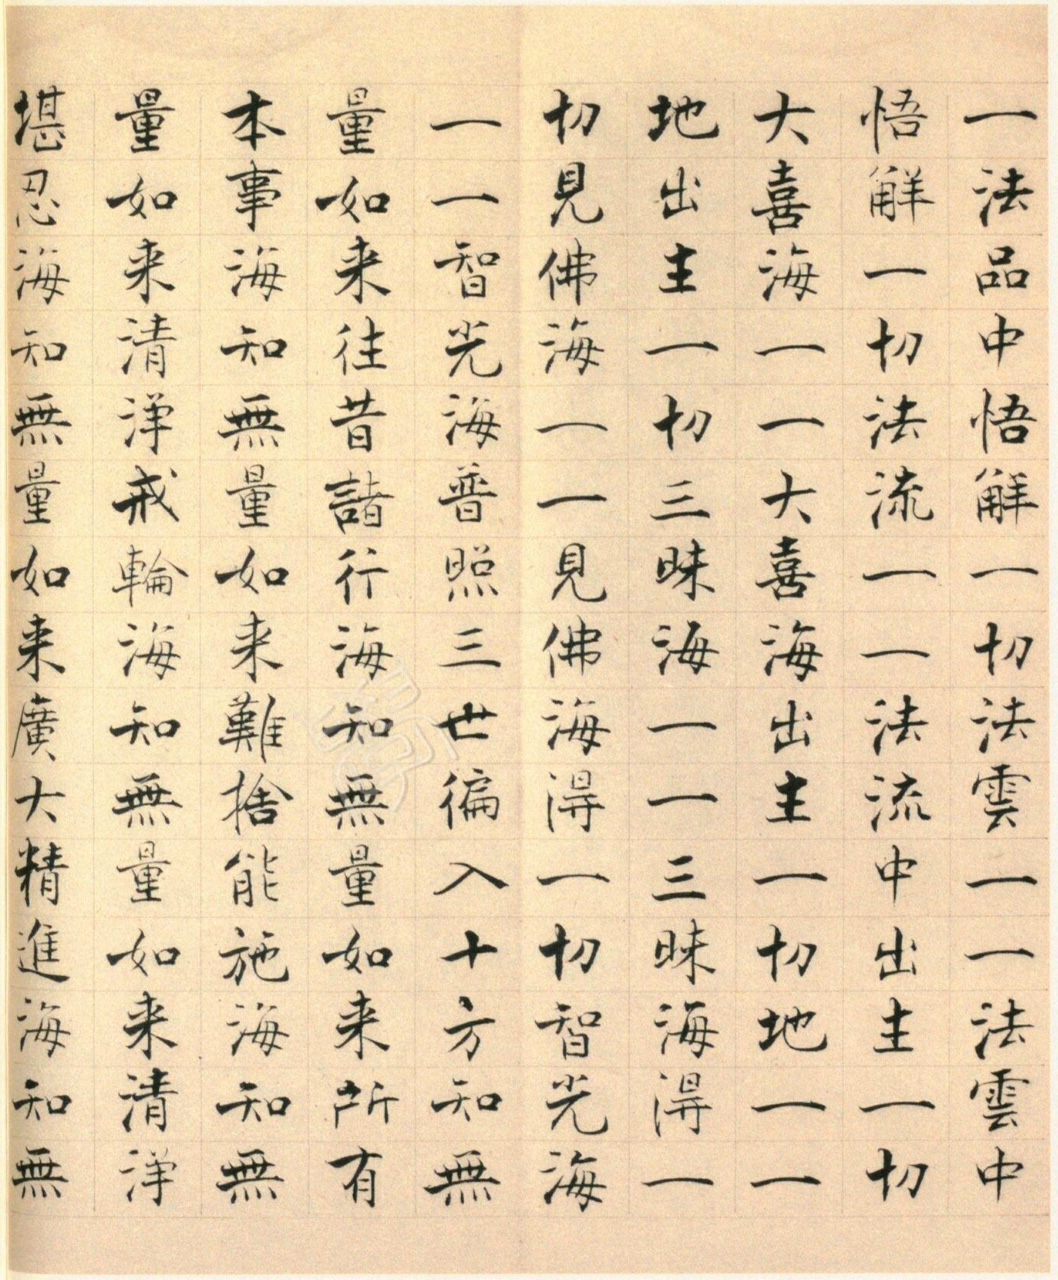 一法品中悟解一切法雲一一法雲中
悟解一切法流一一法流中出生一切
大喜海一一大喜海出生一切地一一
地出生一切三昧海一一三昧海得一
切見佛海一一見佛海得一切智光海
一一智光海普照三世徧入十方知無
量如来往昔諸行海知無量如来所有
本事海知無量如来難捨能施海知無
量如来清淨戒輪海知無量如来清淨
堪忍海知無量如来廣大精進海知無